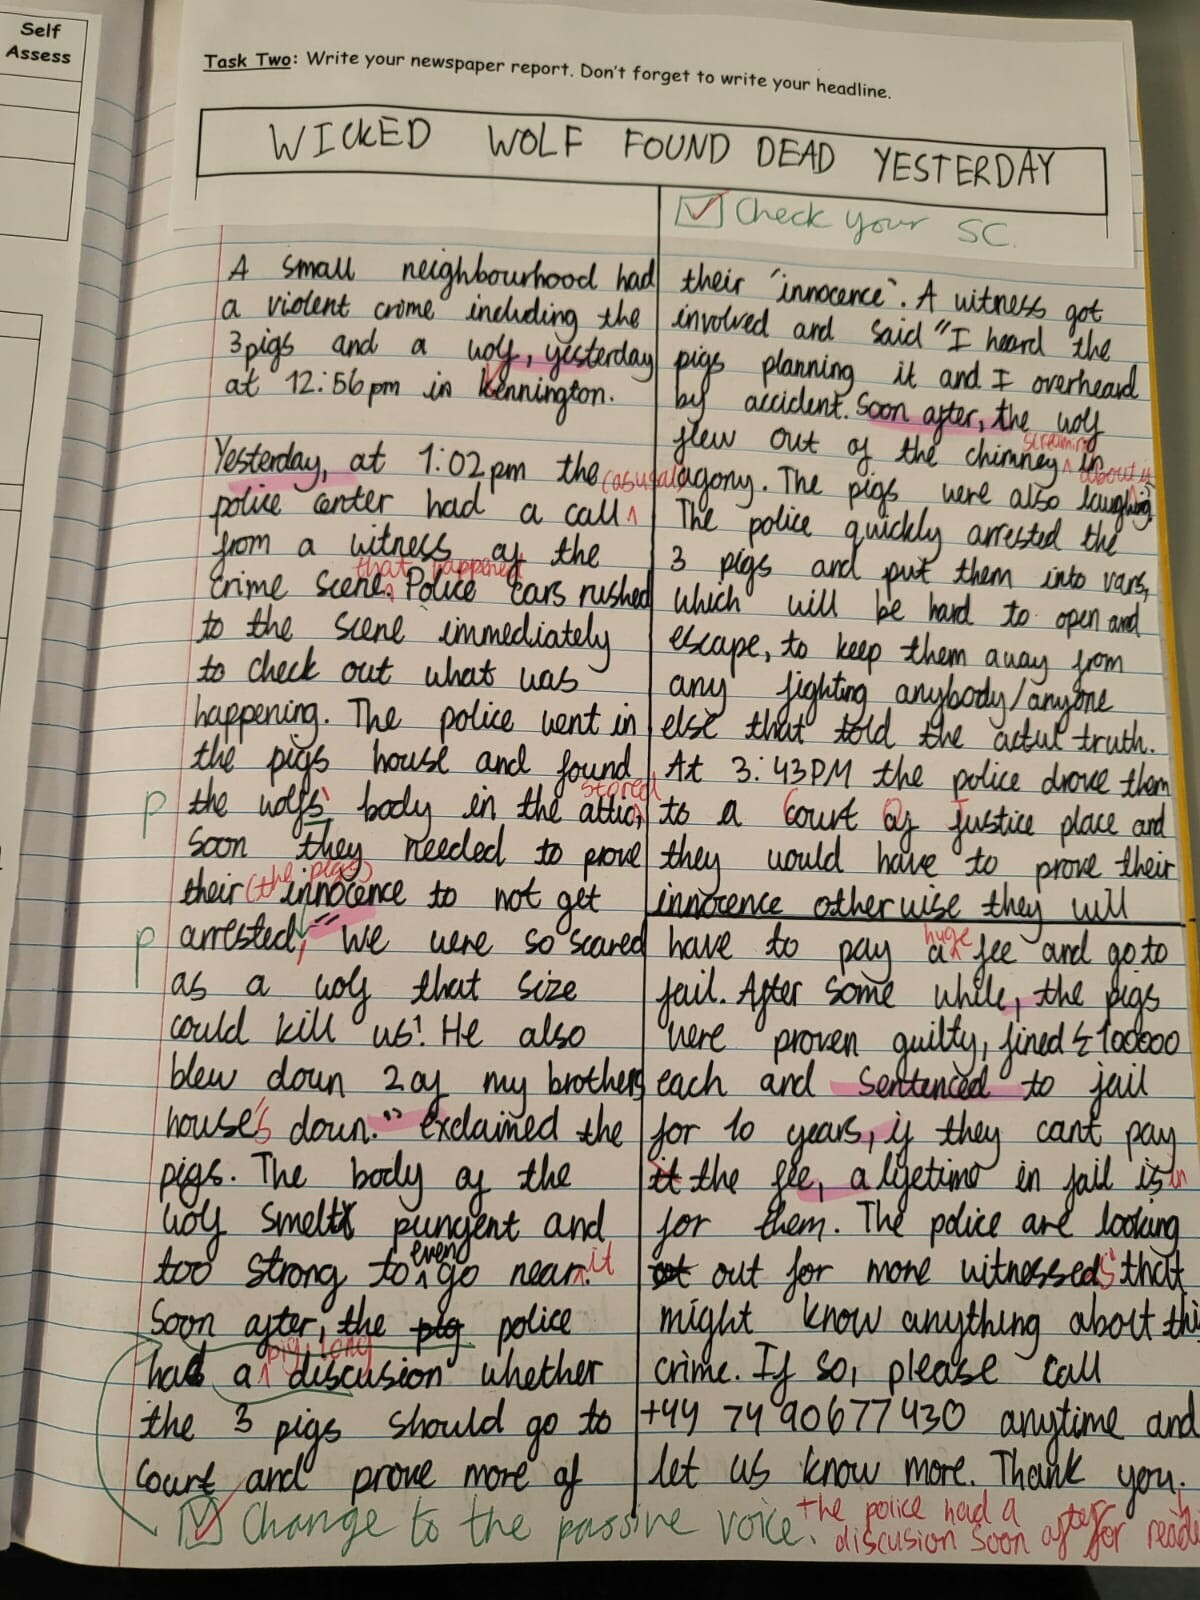 Self
Assess
Task Two: Write your newspaper report. Don't forget to write your headline.
WICKED WOLF FOUND DEAD YESTERDAY
A small neighbourhood had
a violent crime including the
3pigs and a wolf, yesterday
at 12:56pm in Kennington.
Yesterday, at 1:02pm the (casual)
police center had a call
from a witness of the
that happened
crime scene. Police cars rushed
to the scene immediately
to check out what was
happening. The police went in
the pigs house and found
stored
p the wolfs' body in the attic,
soon they needed to prove
their (the pigs) innocence to not get
p arrested, "We were so scared
as a wolf that size
could kill us! He also
blew down 2 of my brothers
house's down." exclaimed the
pigs. The body of the
wolf smelt pungent and
too strong to even go near it.
Soon after, the pig police
pig long
had a discusion whether
the 3 pigs should go to
court and prove more of
☑ Check your SC.
their "innocence". A witness got
involved and said "I heard the
pigs planning it and I overheard
by accident. Soon after, the wolf
flew out of the chimney screaming in
agony. The pigs were also laughing about it
The police quickly arrested the
3 pigs and put them into vars,
which will be hard to open and
escape, to keep them away from
any fighting anybody/anyone
else that told the actul truth.
At 3:43PM the police drove them
to a Court Of Justice place and
they would have to prove their
innocence otherwise they will
have to pay a huge fee and go to
jail. After some while, the pigs
were proven guilty, fined £100000
each and sentenced to jail
for 10 years, if they cant pay
it the fee, a lifetime in jail is in
for them. The police are looking
out out for more witnesses that
might know anything about this
crime. If so, please call
+44 74 90677430 anytime and
let us know more. Thank you.
☑ Change to the passive voice. the police had a
discusion soon after for